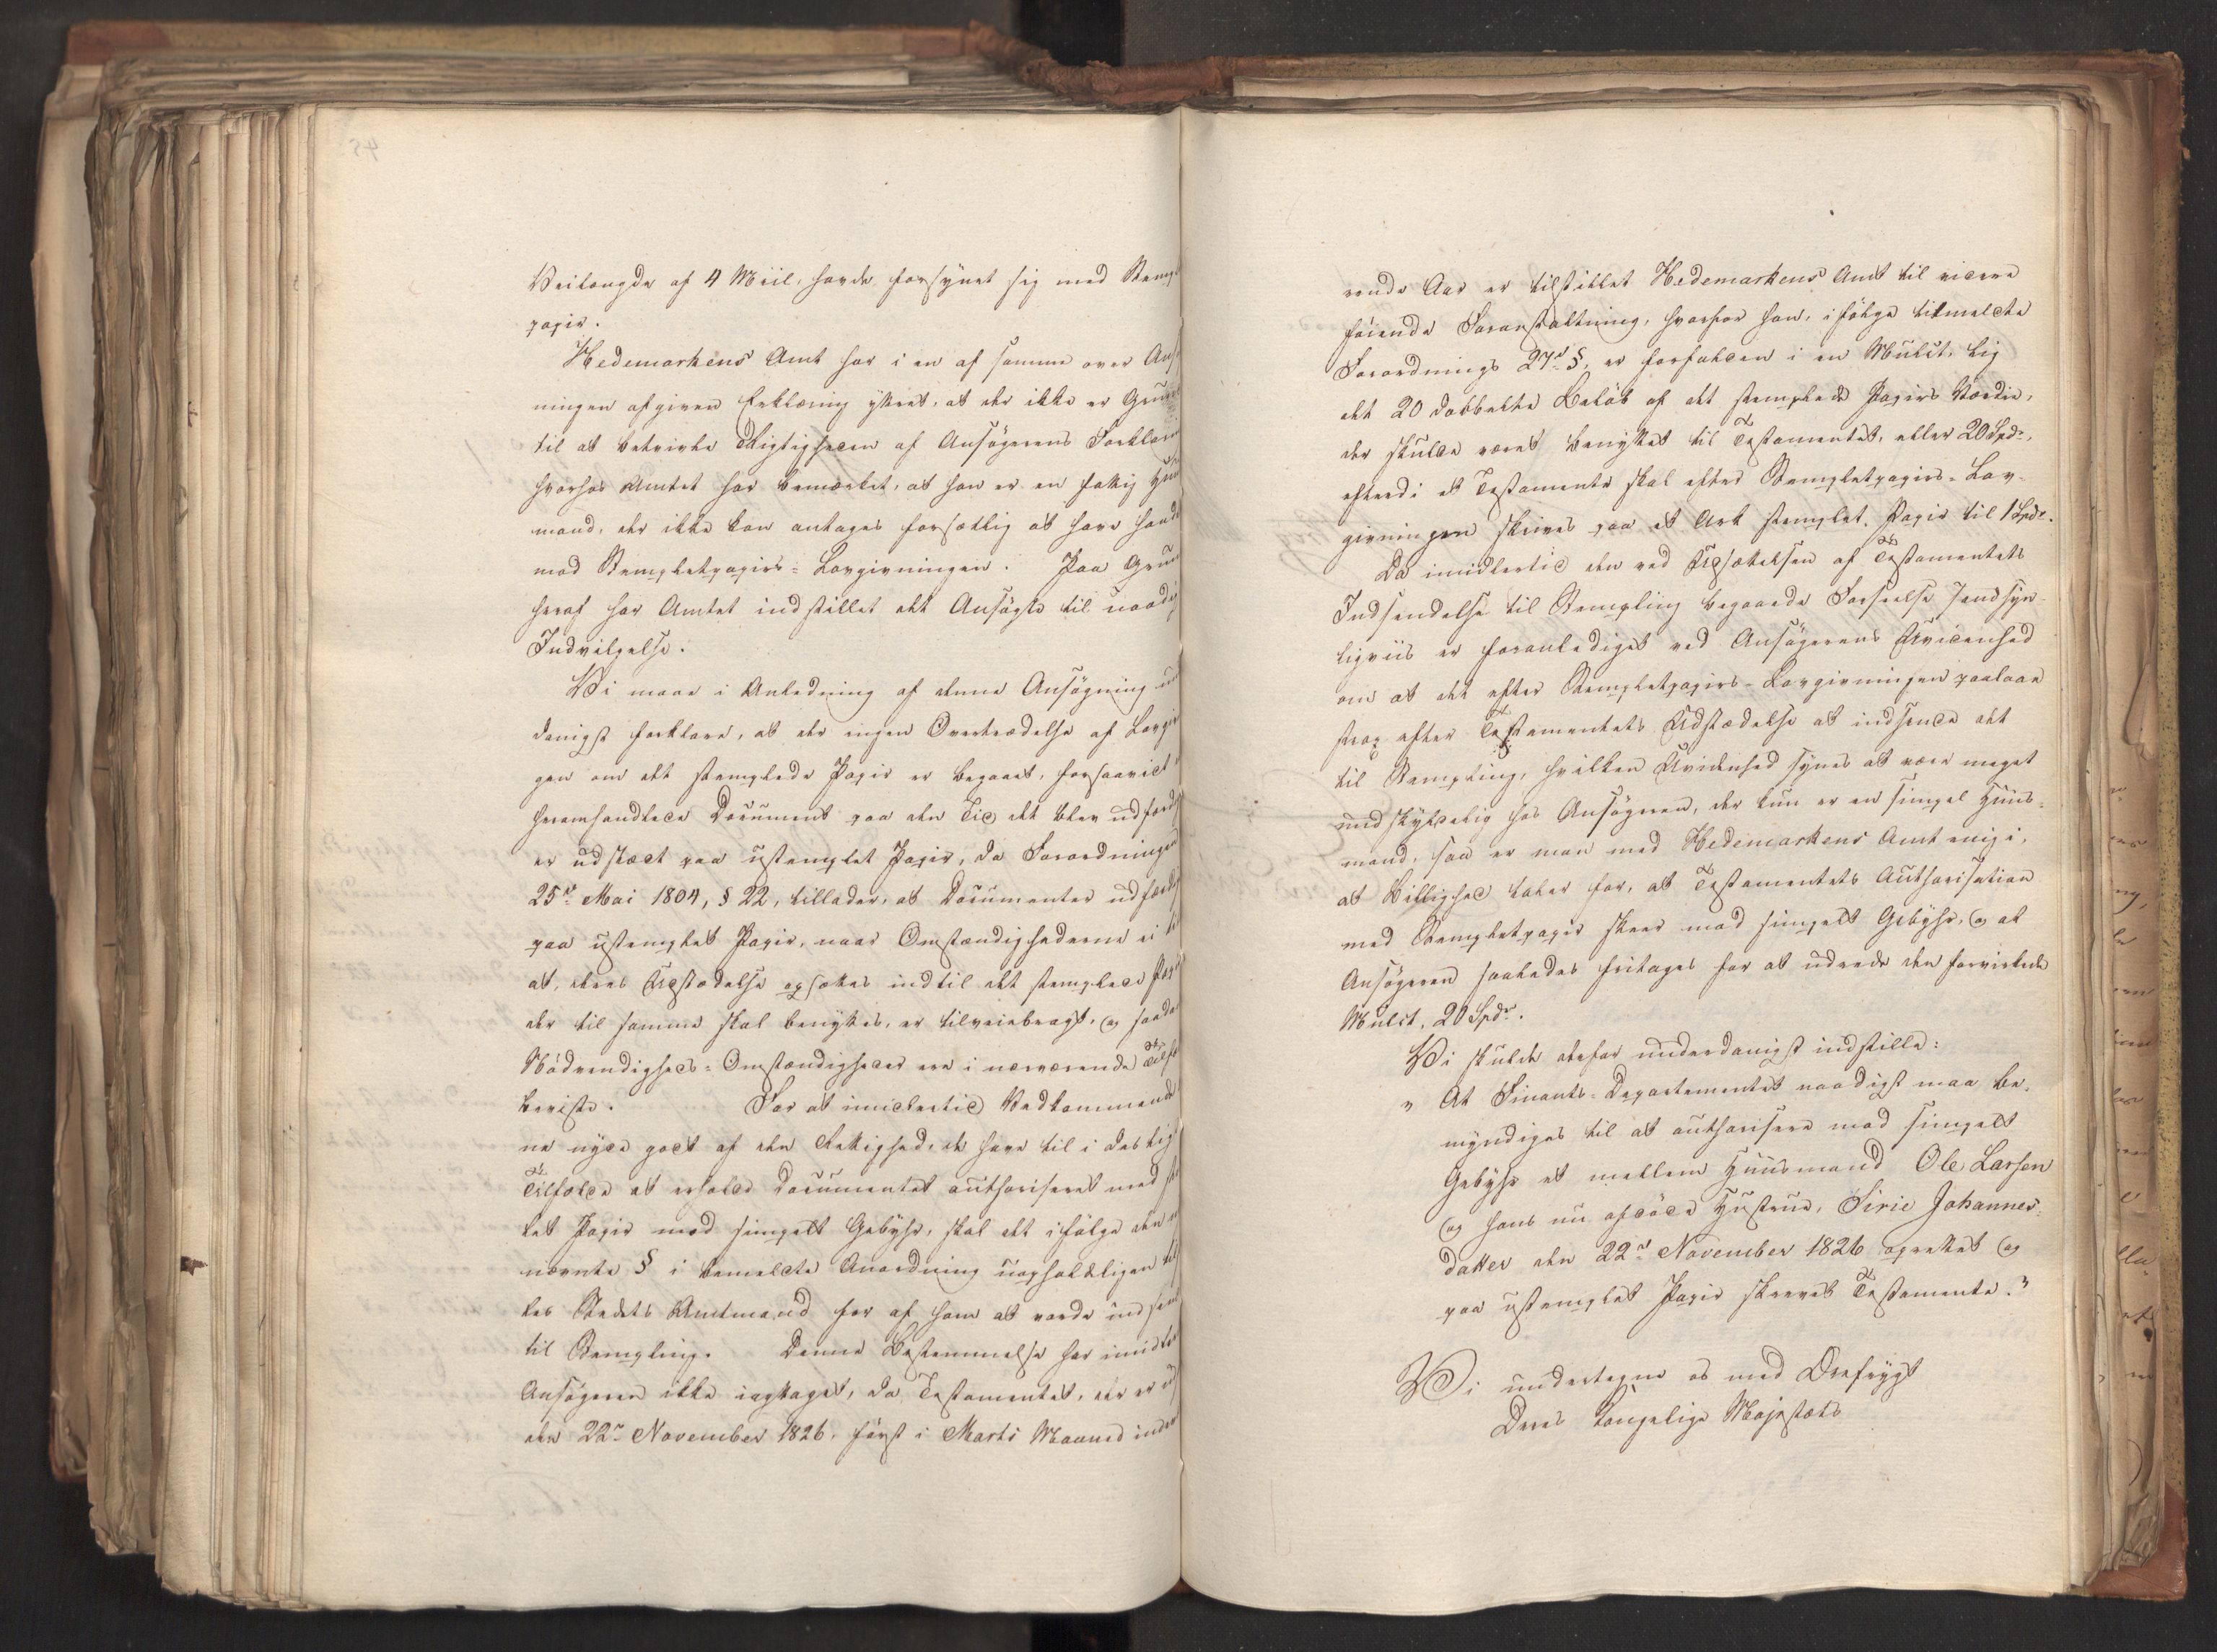 Veilængde af 4 Miil, havde forsynet sig med Stemp
papir.
Hedemarkens Amt har i en af samme over Ans
ningen afgiven Erklæring yttret, at der ikke er Grun
til at betvivle Rigtigheden af Ansøgerens Forklar
hvorhos Amtet har bemærket, at han er en fattig Huus
mand, der ikke kan antages forsætlig at have hand
mod Stempletpapirs-Lovgivningen. Paa Grun
heraf har Amtet indstillet det Ansøgte til naadig
Indvilgelse.
Vi maae i Anledning af denne Ansøgning un
danigst forklare, at der ingen Overtrædelse af Lovgiv
gen om det stemplede Papir er begaaet, forsaavidt
heromhandlede Document paa den Tid det blev udfærd
er udstædt paa ustemplet Papir, da Forordningen
25de Mai 1804, § 22, tillader, at Documenter udfærdi
paa ustemplet Papir, naar Omstændighederne ei til
at, deres Udstædelse opsættes indtil det stemplede Papir
der til samme skal benyttes, er tilveiebragt, og saada
Nødvendigheds-Omstændigheder ere i nærværende Tilfæ
beviste. For at imidlertid Vedkommende
ne nyde godt af den Rettighed, de have til i deslige
Tilfælde at erholde Documentet authoriseret med st
let Papir mod simpelt Gebyhr, skal det ifølge den
nævnte § i bemeldte Anordning uopholdeligen til
les Stedets Amtmand for af ham at vorde indsen
til Stempling. Denne Bestemmelse har imidler
Ansøgeren ikke iagttaget, da Testamentet, der er ud
den 22de November 1826, først i Marti Maaned inde
rende Aar er tilstillet Hedemarkens Amt til videre
føiende Foranstaltning, hvorfor han, ifølge titmeldte
Forordnings 27de §, er forfalden i en Mulct, lig
det 20 dobbelte Beløb af det stemplede Papirs Værdie,
der skulde været benyttet til Testamentet, eller 20 Spdr,
efterdi et Testamente skal efter Stempletpapirs-Lov-
givningen skrives paa et Ark stemplet Papir til 1 Spdr.
Da imidlertid den ved Udsættelsen af Testamentets
Indsendelse til Stempling begaaede Forseelse sandsyn-
ligviis er foranlediget ved Ansøgerens Uvidenhed
om at det efter Stempletpapirs-Lovgivningen paalaae
strax efter Testamentets Udstædelse at indsende det
til Stempling, hvilken Uvidenhed synes at være meget
undskyldelig hos Ansøgeren, der kun er en simpel Huus-
mand, saa er man med Hedemarkens Amt enig i,
at Billighed taler for, at Testamentets Authorisation
med Stempletpapir skeer mod simpelt Gebyhr, og at
Ansøgeren saaledes fritages for at udrede den forvirkede
Mulct, 20 Spdr.
Vi skulde derfor underdanigst indstille:
"At Finants-Departementet naadigst maa be-
myndiges til at authorisere mod simpelt
Gebyhr et mellem Huusmand Ole Larsen
og hans nu afdøde Hustrue, Sirie Johannes-
datter den 22de November 1826 oprettet og
paa ustemplet Papir skrevet Testamente."
Vi undertegne os med Ærefrygt
Deres Kongelige Majestæts